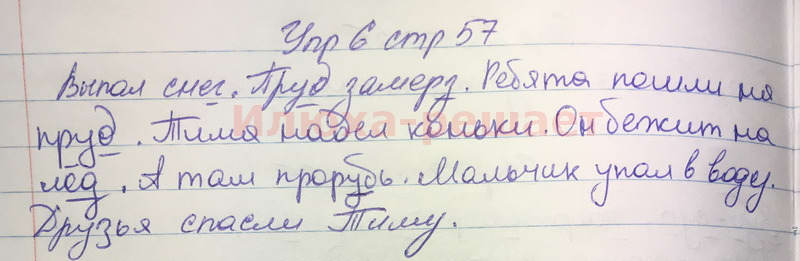 Упр 6 стр 57
Выпал снег. Пруд замерз. Ребята пошли на
пруд. Тима надел коньки. Он бежит на
лед. А там прорубь. Мальчик упал в воду.
Друзья спасли Тиму.
Илюха-решает